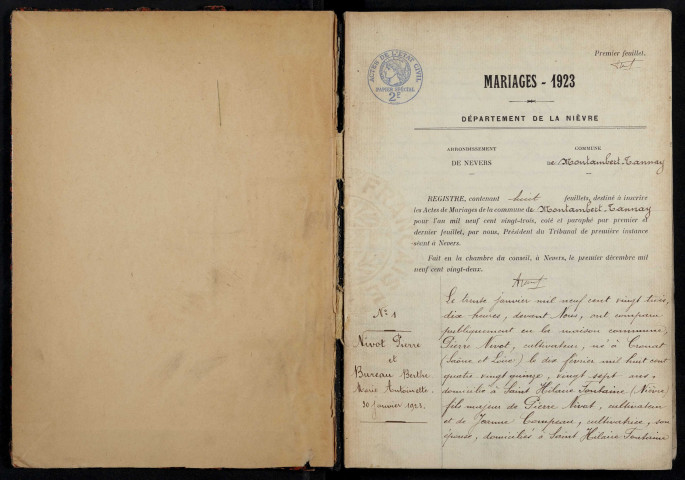 Premier feuillet.
ACTES DE L'ETAT CIVIL
PAPIER SPÉCIAL
2F
MARIAGES - 1923
DÉPARTEMENT DE LA NIÈVRE
ARRONDISSEMENT
DE NEVERS
COMMUNE
DE Montambert-Tannay
REGISTRE, contenant huit feuillets, destiné à inscrire
les Actes de Mariages de la commune de Montambert-Tannay
pour l'an mil neuf cent vingt-trois, coté et paraphé par premier et
dernier feuillet, par nous, Président du Tribunal de première instance
séant à Nevers.
Fait en la chambre du conseil, à Nevers, le premier décembre mil
neuf cent vingt-deux.
No 1
Nivot Pierre
et
Bureau Berthe
Marie Antoinette.
30 Janvier 1923.
Le trente janvier mil neuf cent vingt trois,
dix heures, devant Nous, ont comparu
publiquement en la maison commune,
Pierre Nivot, cultivateur, né à Cronat
(Saône et Loire) le dix février mil huit cent
quatre vingt quinze, vingt sept ans,
domicilié à Saint Hilaire Fontaine (Nièvre)
fils majeur de Pierre Nivot, cultivateur
et de Jeanne Compeau, cultivatrice, son
épouse, domiciliés à Saint Hilaire Fontaine